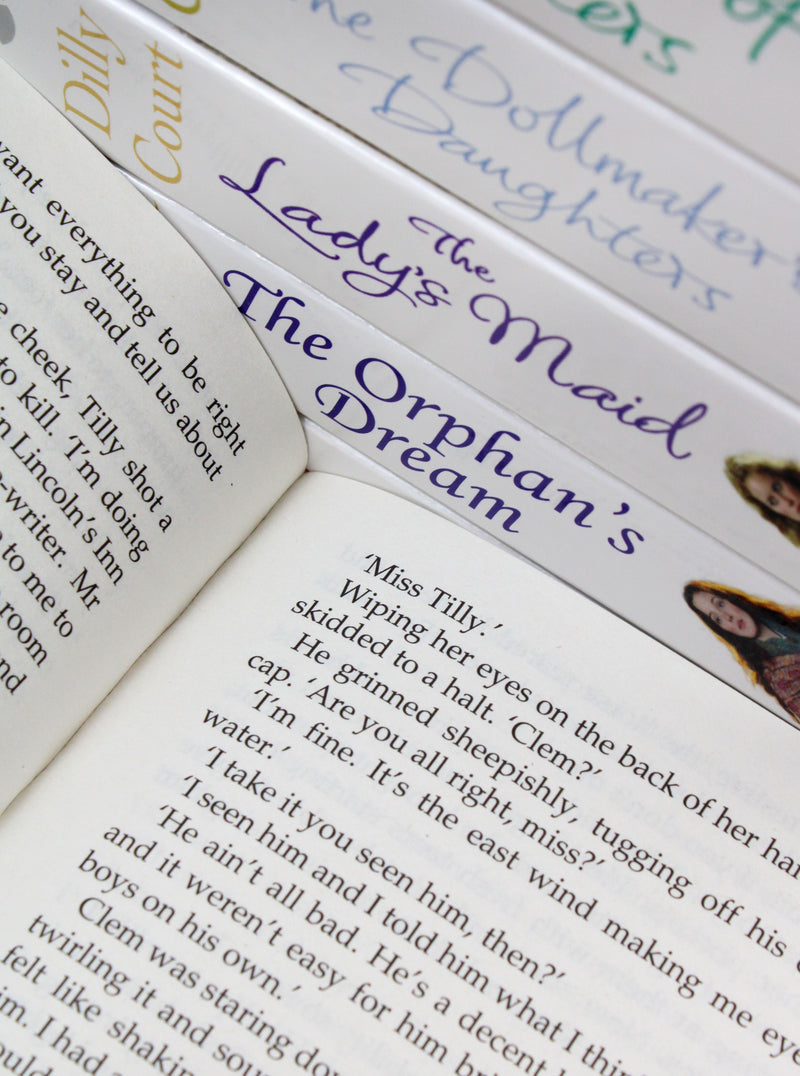 of
ters
The Dollmaker's
Daughters
Dilly
Court
The
Lady's Maid
The Orphan's
Dream
want everything to be right
you stay and tell us about
cheek, Tilly shot a
to kill. 'I'm doing
in Lincoln's Inn
-writer. Mr
to me to
room
nd
'Miss Tilly.'
Wiping her eyes on the back of her han
skidded to a halt. 'Clem?'
He grinned sheepishly, tugging off his
cap. 'Are you all right, miss?'
'I'm fine. It's the east wind making me eye
water.'
'I take it you seen him, then?'
'I seen him and I told him what I thin
'He ain't all bad. He's a decent
and it weren't easy for him bri
boys on his own.'
Clem was staring do
twirling it and sou
felt like shakin
im. I had
ould